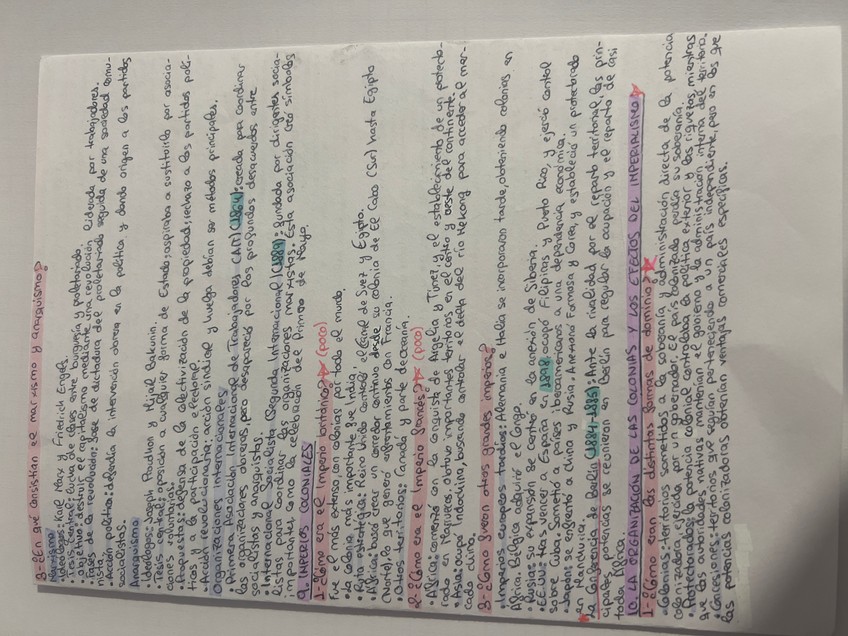 3-¿En qué consistían el marxismo y anarquismo?
Marxismo:
• Ideólogos: Karl Marx y Friedrich Engels.
• Tesis central: lucha de clases entre burguesía y proletariado.
• Objetivo: destruir el capitalismo mediante una revolución liderada por trabajadores.
• Fases de la revolución: fase de dictadura del proletariado seguida de una sociedad comu-
nista.
• Acción política: defendía la intervención obrera en la política y dando origen a los partidos
socialistas.
Anarquismo:
• Ideólogos: Joseph Proudhon y Mijaíl Bakunin.
• Tesis central: oposición a cualquier forma de Estado; aspiraba a sustituirlo por asocia-
ciones voluntarias.
• Propuestas: defensa de la colectivización de la propiedad, rechazo a los partidos polí-
ticos y a la participación electoral.
• Acción revolucionaria: acción sindical y huelga debían ser métodos principales.
Organizaciones internacionales
• Primera Asociación Internacional de Trabajadores (AIT) (1864): creada para coordinar
las organizaciones obreras, pero desapareció por los profundos desacuerdos entre
socialistas y anarquistas.
• Internacional Socialista (Segunda Internacional) (1889): fundada por dirigentes socia-
listas para coordinar las organizaciones marxistas. Esta asociación creó símbolos
importantes como la celebración del Primero de Mayo.
9. IMPERIOS COLONIALES
1-¿Cómo era el Imperio británico? (poco)
Fue el más extenso, con colonias por todo el mundo.
• La colonia más importante fue India.
• Ruta estratégica: Reino Unido controló el Canal de Suez y Egipto.
• África: buscó crear un corredor continuo desde su colonia de El Cabo (Sur) hasta Egipto
(Norte), lo que generó enfrentamientos con Francia.
• Otros territorios: Canadá y parte de Oceanía.
2-¿Cómo era el Imperio francés? (poco)
• África: comenzó con la conquista de Argelia y Túnez, y el establecimiento de un protecto-
rado en Marruecos. Obtuvo importantes territorios en el centro y oeste del continente.
• Asia: ocupó Indochina, buscando controlar el delta del río Mekong para acceder al mer-
cado chino.
3-¿Cómo fueron otros grandes imperios?
• Imperios europeos tardíos: Alemania e Italia se incorporaron tarde, obteniendo colonias en
África. Bélgica adquirió el Congo.
• Rusia: su expansión se centró en la anexión de Siberia.
• EE.UU: tras vencer a España en 1898, ocupó Filipinas y Puerto Rico, y ejerció control
sobre Cuba. Sometió a países iberoamericanos a una dependencia económica.
• Japón: se enfrentó a China y Rusia. Anexionó Formosa y Corea, y estableció un protectorado
en Manchuria.
La Conferencia de Berlín (1884-1885): Ante la rivalidad por el reparto territorial, las prin-
cipales potencias se reunieron en Berlín para regular la ocupación y el reparto de casi
toda África.
10. LA ORGANIZACIÓN DE LAS COLONIAS Y LOS EFECTOS DEL IMPERIALISMO
1-¿Cómo eran las distintas formas de dominio?
• Colonias: territorios sometidos a la soberanía y administración directa de la potencia
colonizadora, ejercida por un gobernador, el país colonizado perdía su soberanía.
• Protectorados: la potencia colonial controlaba la política exterior y las riquezas, mientras
que las autoridades nativas mantenían el gobierno y la administración interna del territorio.
• Concesiones: territorios que seguían perteneciendo a un país independiente, pero en los que
las potencias colonizadoras obtenían ventajas comerciales específicas.